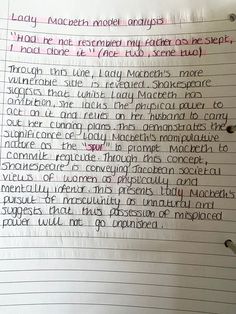 Lady Macbeth model analysis
"Had he not resembled my father as he slept,
I had done it" (Act two, scene two)
Through this line, Lady Macbeth's more
vulnerable side is revealed. Shakespeare
suggests that whilst Lady Macbeth has
ambition, she lacks the physical power to
act on it and relies on her husband to carry
out her cunning plans. This demonstrates the
significance of Lady Macbeth's manipulative
nature as the "spur" to prompt Macbeth to
commit regicide. Through this concept,
Shakespeare is conveying Jacobean societal
views of women as physically and
mentally inferior. This presents Lady Macbeth's
pursuit of masculinity as unnatural and
suggests that this possession of misplaced
power will not go unpunished.